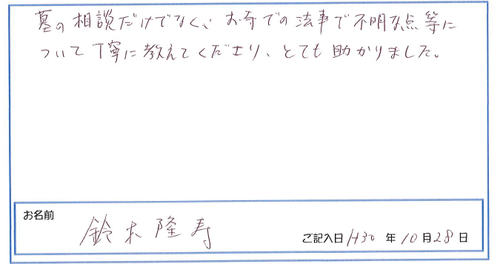 墓の相談だけでなく、お寺での法事で不明な点等に
ついて丁寧に教えてくださり、とても助かりました。
お名前
鈴木隆寿
ご記入日 H30 年 10 月 28 日